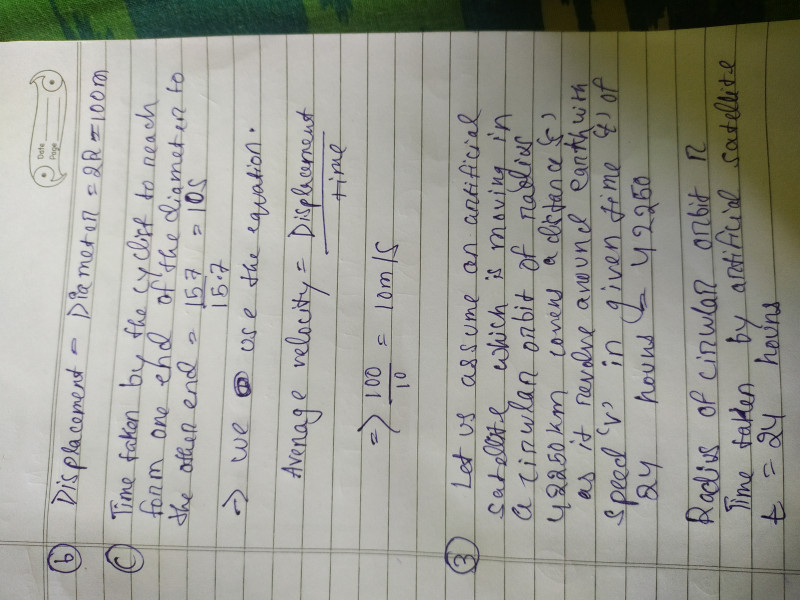 Date
Page
(b) Displacement = Diameter = 2R = 100m
(C) Time taken by the cyclist to reach
form one end of the diameter to
the other end = 157/15.7 = 10s
-> We use the equation.
Average velocity = Displacement/time
=> 100/10 = 10m/s
(3) Let us assume an artificial
satellite which is moving in
a circular orbit of radius
42250 km covers a distance 's'
as it revolve around earth with
speed 'v' in given time 't' of
24 hours = 42250
Radius of circular orbit r
Time taken by artificial satellite
t = 24 hours